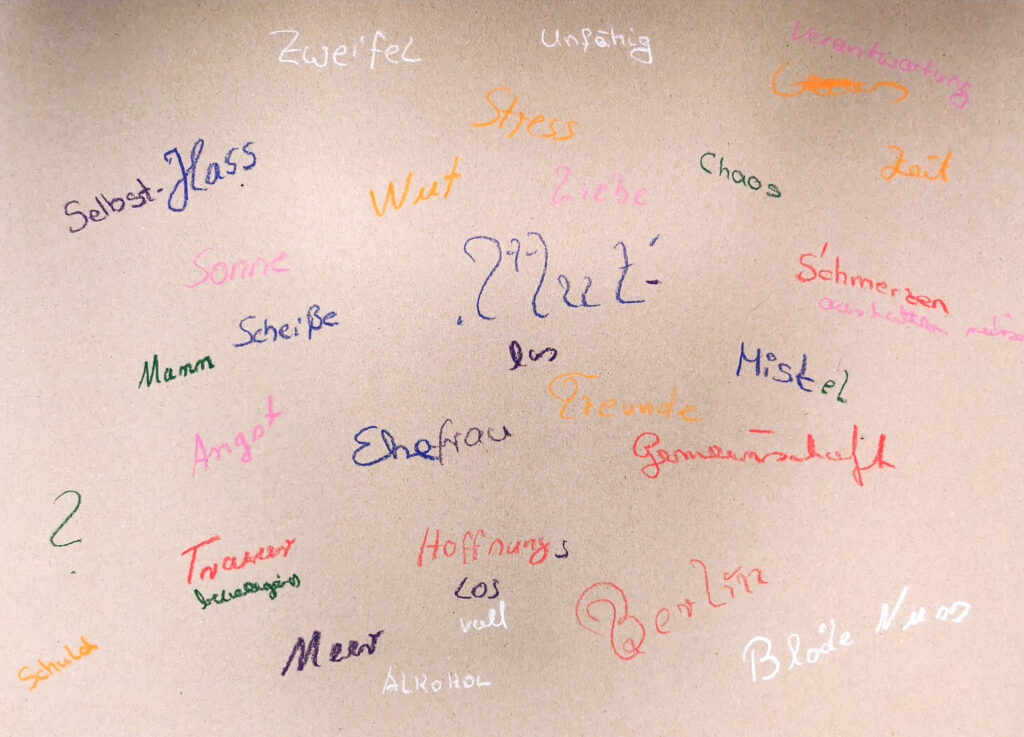 Zweifel
Unfähig
Verantwortung
Stress
Selbst-Hass
Wut
Liebe
Chaos
Zeit
Sonne
Mut-
los
Schmerzen
aushalten
Scheiße
Mann
Mistel
Freunde
Angst
Ehefrau
Gemeinschaft
?
Trauer
Hoffnungs
LOS
voll
Berlin
Schuld
Meer
ALKOHOL
Blöde Nuss